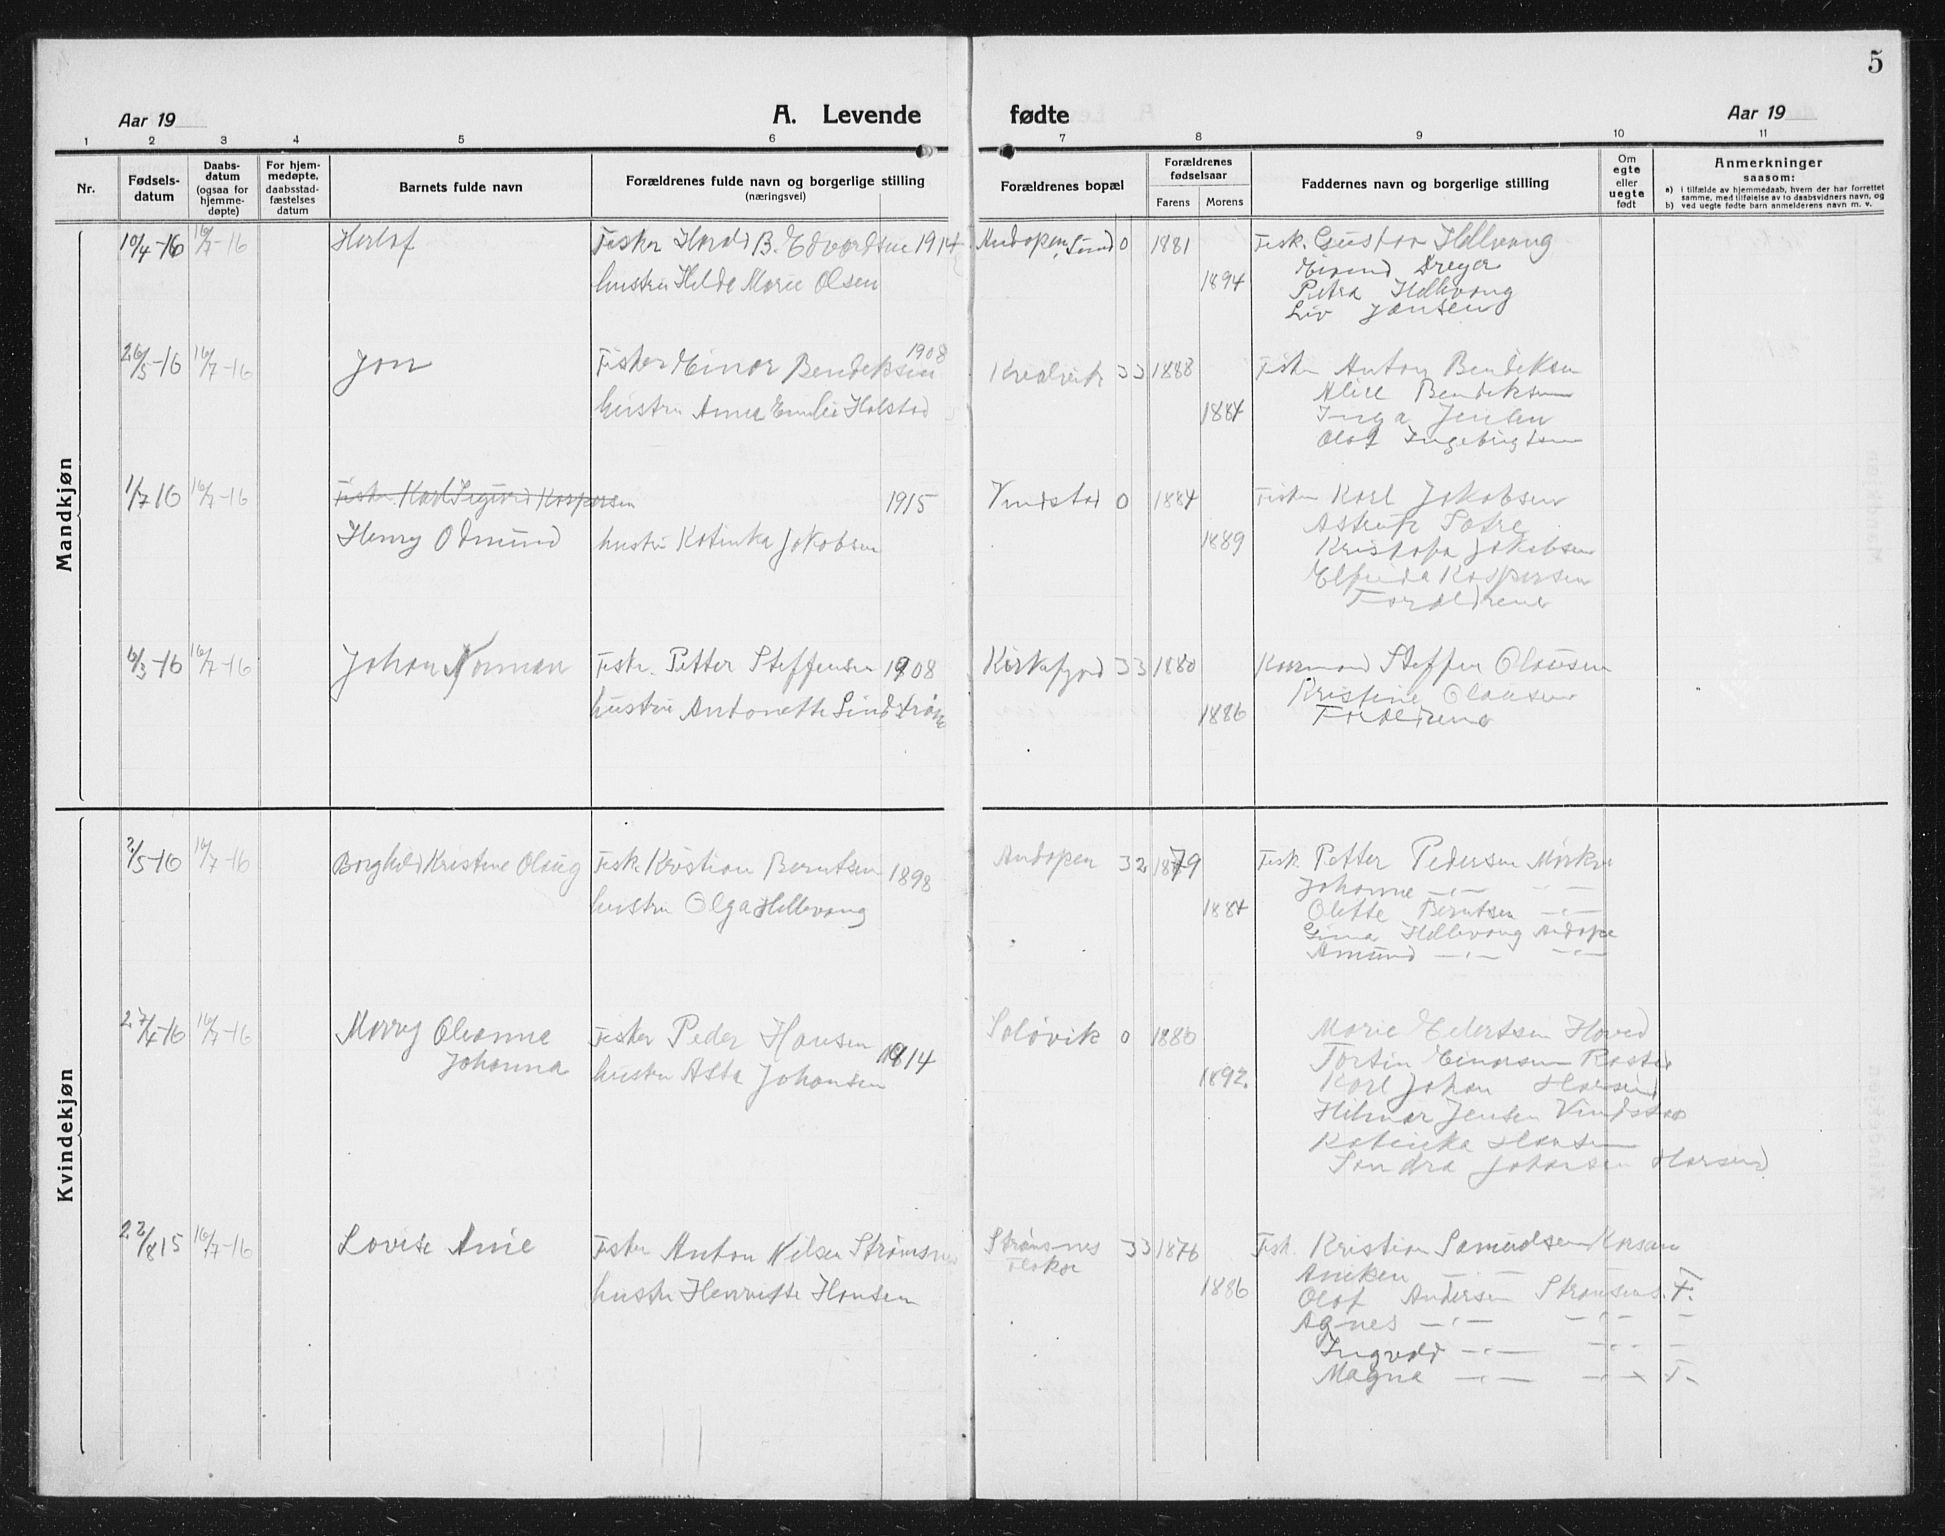 5
Aar 19
A. Levende fødte
Aar 19
1 2 3 4 5 6 7 8 9 10 11
Nr.
Fødsels-
datum
Daabs-
datum
(ogsaa for
hjemme-
døpte)
For hjem-
medøpte,
daabsstad-
fæstelses
datum
Barnets fulde navn
Forældrenes fulde navn og borgerlige stilling
(næringsvei)
Forældrenes bopæl
Forældrenes
fødselsaar
Farens Morens
Faddernes navn og borgerlige stilling
Om
egte
eller
uegte
født
Anmerkninger
saasom:
a) i tilfælde av hjemmedaab, hvem der har forrettet
samme, med tilføielse av to daabsvidners navn, og
b) ved uegte fødte barn anmelderens navn m. v.
Mandkjøn
10/4-16 16/7-16 Herlof Fisker B. Edvardsen 1914 Andopen, Sund 0 1881 Fisk. Gustav Hellvang
Eivind Dreyer
hustru Hilda Marie Olsen 1894 Petra Hellvang
Liv Jansen
26/5-16 16/7-16 Jon Fisker Einar Bendiksen 1908 Kvalvik 33 1888 Fisker Anton Bendiksen
Alice Bendiksen
hustru Anna Emilie Halstad 1884 Inga Jensen
Olaf Ingebrigtsen
1/7 16 16/7-16 Fisker Karl Sigurd Kaspersen 1915 Vindstad 0 1884 Fisker Karl Jakobsen
Astrup Sætre
Henry Odmund hustru Katinka Jakobsen 1889 Kristofa Jakobsen
Elfrida Kaspersen
Forældrene
6/3-16 16/7-16 Johan Norman Fisk. Petter Steffensen 1908 Kirkefjord 33 1880 Steffen Olausen
Kristine Olausen
hustru Antonette Lindstrøm 1886 Forældrene
Kvindekjøn
2/5-16 16/7-16 Borghild Kristine Olaug Fisk. Kristian Berntsen 1898 Andopen 32 1879 Fisk. Petter Pedersen Mørkve
Johanne -"-
hustru Olga Hellevang 1884 Olette Berntsen -"-
Gina Hellevang Andope
Amund -"- -"-
27/4-16 16/7-16 Marry Oleanna Fisker Peder Hansen Soløvik 0 1880 Marie Edertsen Hoved
Johanna 1914 Einarsen
hustru Asta Johansen 1892. Karl Johan
Hilmar Jensen Vindstad
Katinka Hansen
Sandra Johansen
22/8 15 16/7-16 Lovise Anie Fisker Anton Nilsen Strømsnes Strømsnes 33 1876 Fisk. Kristian Samuelsen
Aniken -"-
hustru Henriette Hansen 1886 Olaf Andersen Strømsnes. F.
Agnes -"- -"- -
Ingvald -"- -"- -
Magna -"- -"- F-